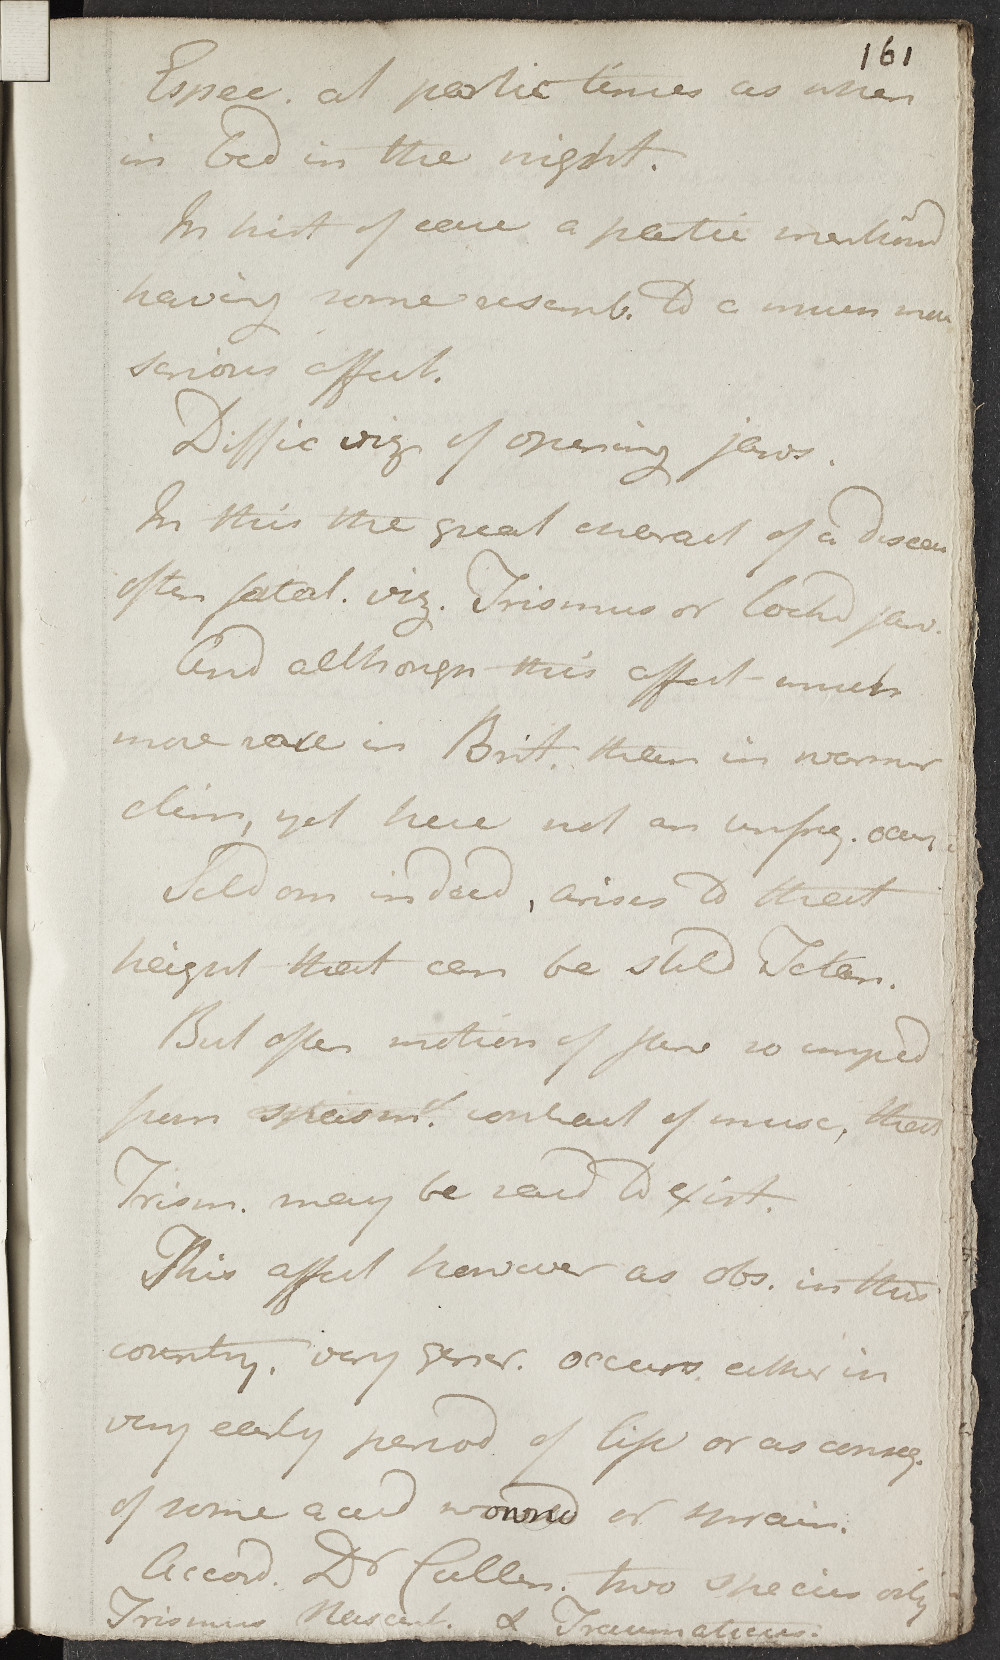 161
Espec. at partic times as when
in bed in the night.
In hist of case a partic mentiond
having some resemb. to a much more
serious affect.
Diffic viz of opening jaws.
In this the great charact of a diseas
often fatal. viz. Trismus or lockd jaw.
And although this affect much
more rare in Brit. than in warmer
clim, yet here not an unfreq. occur
Seldom indeed, arises to that
height that can be stild Tetan.
But often motion of jaw so imped
from spasmd. contract of musc, that
Trism. may be said to exist.
This affect however as obs. in this
country. very gener. occurs either in
very early period of life or as conseq.
of some accid wound or sprain.
Accord. Dr Cullen. two species only
Trismus Nascent. & Traumaticus.